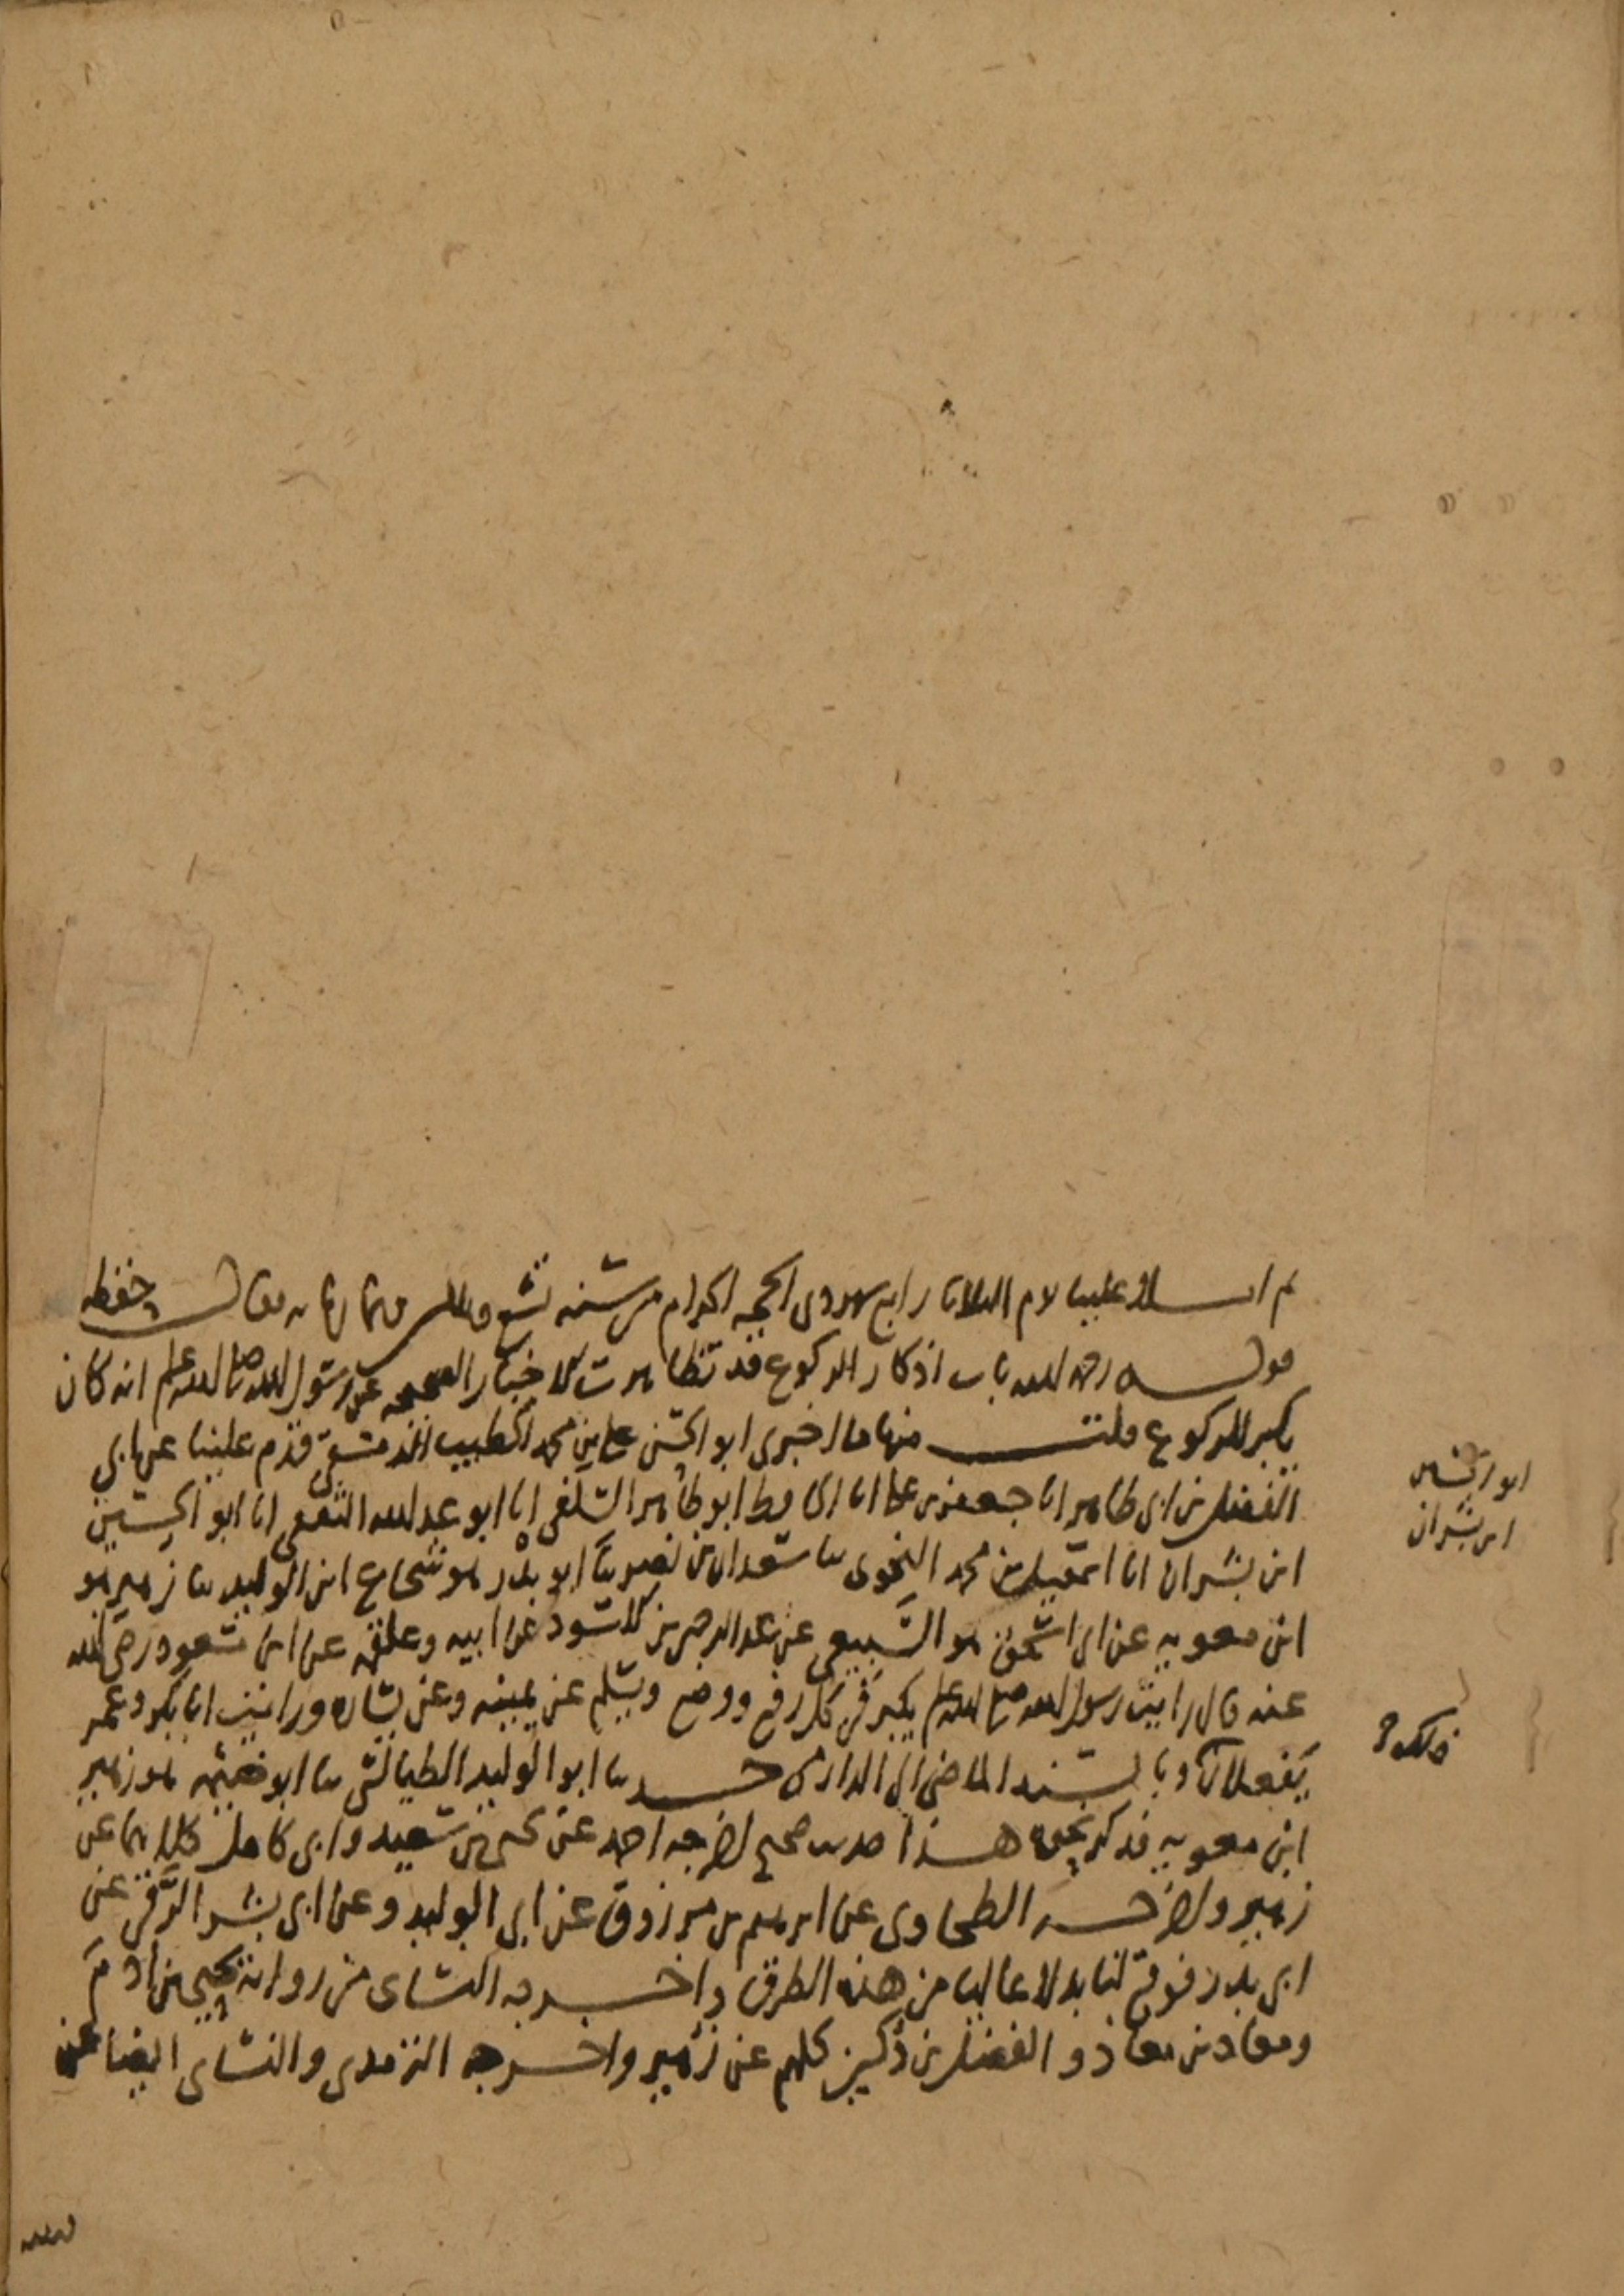 ثم املا علينا يوم الثلاثا رابع شهر ذى الحجة الحرام من سنة تسع وثلاثين وثمانمائه فقال حفظه
قوله رحمه الله باب اذكار الركوع قد تظاهرت الاخبار الصحيحه عن رسول الله صلى الله عليه وسلم انه كان
يكبر للركوع قلت منها ما اخبرنى ابو الحسن على بن محمد الخطيب الدمشقى قدم علينا عن ابى
الفضل بن ابى طاهر انا جعفر بن على انا الحافظ ابو طاهر السلفى انا ابو عبد الله الثقفى انا ابو الحسين
ابن بشران انا اسمعيل بن محمد النحوى ثنا سعدان بن نصر ثنا ابو بدر هو شجاع ابن الوليد ثنا زهير هو
ابن معويه عن ابى اسحق هو السبيعى عن عبد الرحمن بن الاسود عن ابيه وعلقمه عن ابن مسعود رضى الله
عنه قال رايت رسول الله صلى الله عليه وسلم يكبر فى كل رفع ووضع ويسلم عن يمينه وعن يساره ورايت ابا بكر وعمر
يفعلان وبالسند الماضى الى الدارمى ثنا ابو الوليد الطيالسى ثنا ابو خيثمه هو زهير
ابن معويه فذكر نحوه هذا حديث صحيح اخرجه احمد عن يحيى بن سعيد وابى كامل كلاهما عن
زهير واخرجه الطحاوى عن ابرهيم بن مرزوق عن ابى الوليد وعن ابى بشر الرقى عن
ابى بدر فوقع لنا بدلا عاليا من هذه الطرق واخرجه النساى من رواية يحيى بن ادم
ومعاذ بن معاذ والفضل بن دكين كلهم عن زهير واخرجه الترمذى والنساى ايضا عن
ابو الحسين
ابن بشران
ذلك